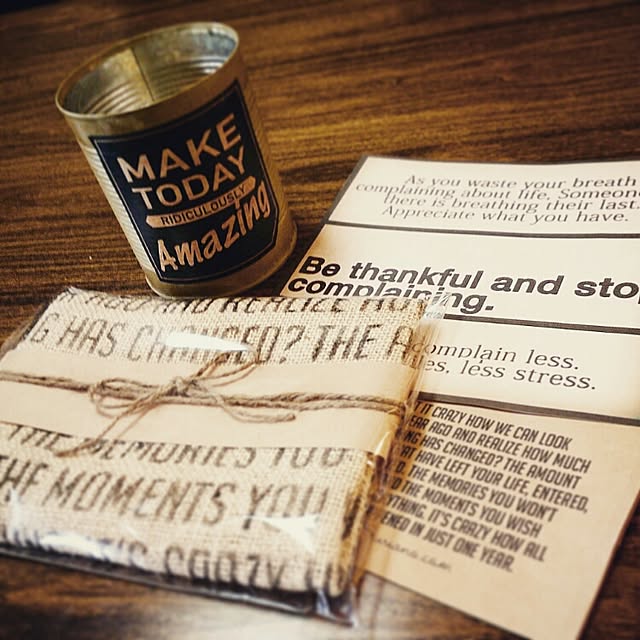 MAKE
TODAY
RIDICULOUSLY
Amazing
As you waste your breath
complaining about life. Someone
there is breathing their last.
Appreciate what you have.
Be thankful and sto
complaining.
complain less.
es, less stress.
IT CRAZY HOW WE CAN LOOK
EAR AGO AND REALIZE HOW MUCH
NG HAS CHANGED? THE AMOUNT
AT HAVE LEFT YOUR LIFE, ENTERED,
D. THE MEMORIES YOU WON'T
D THE MOMENTS YOU WISH
THING. IT'S CRAZY HOW ALL
ENED IN JUST ONE YEAR.
AGO AND REALIZE HO
G HAS CHANGED? THE A
THE MEMORIES YOU
THE MOMENTS YOU
CRAZY